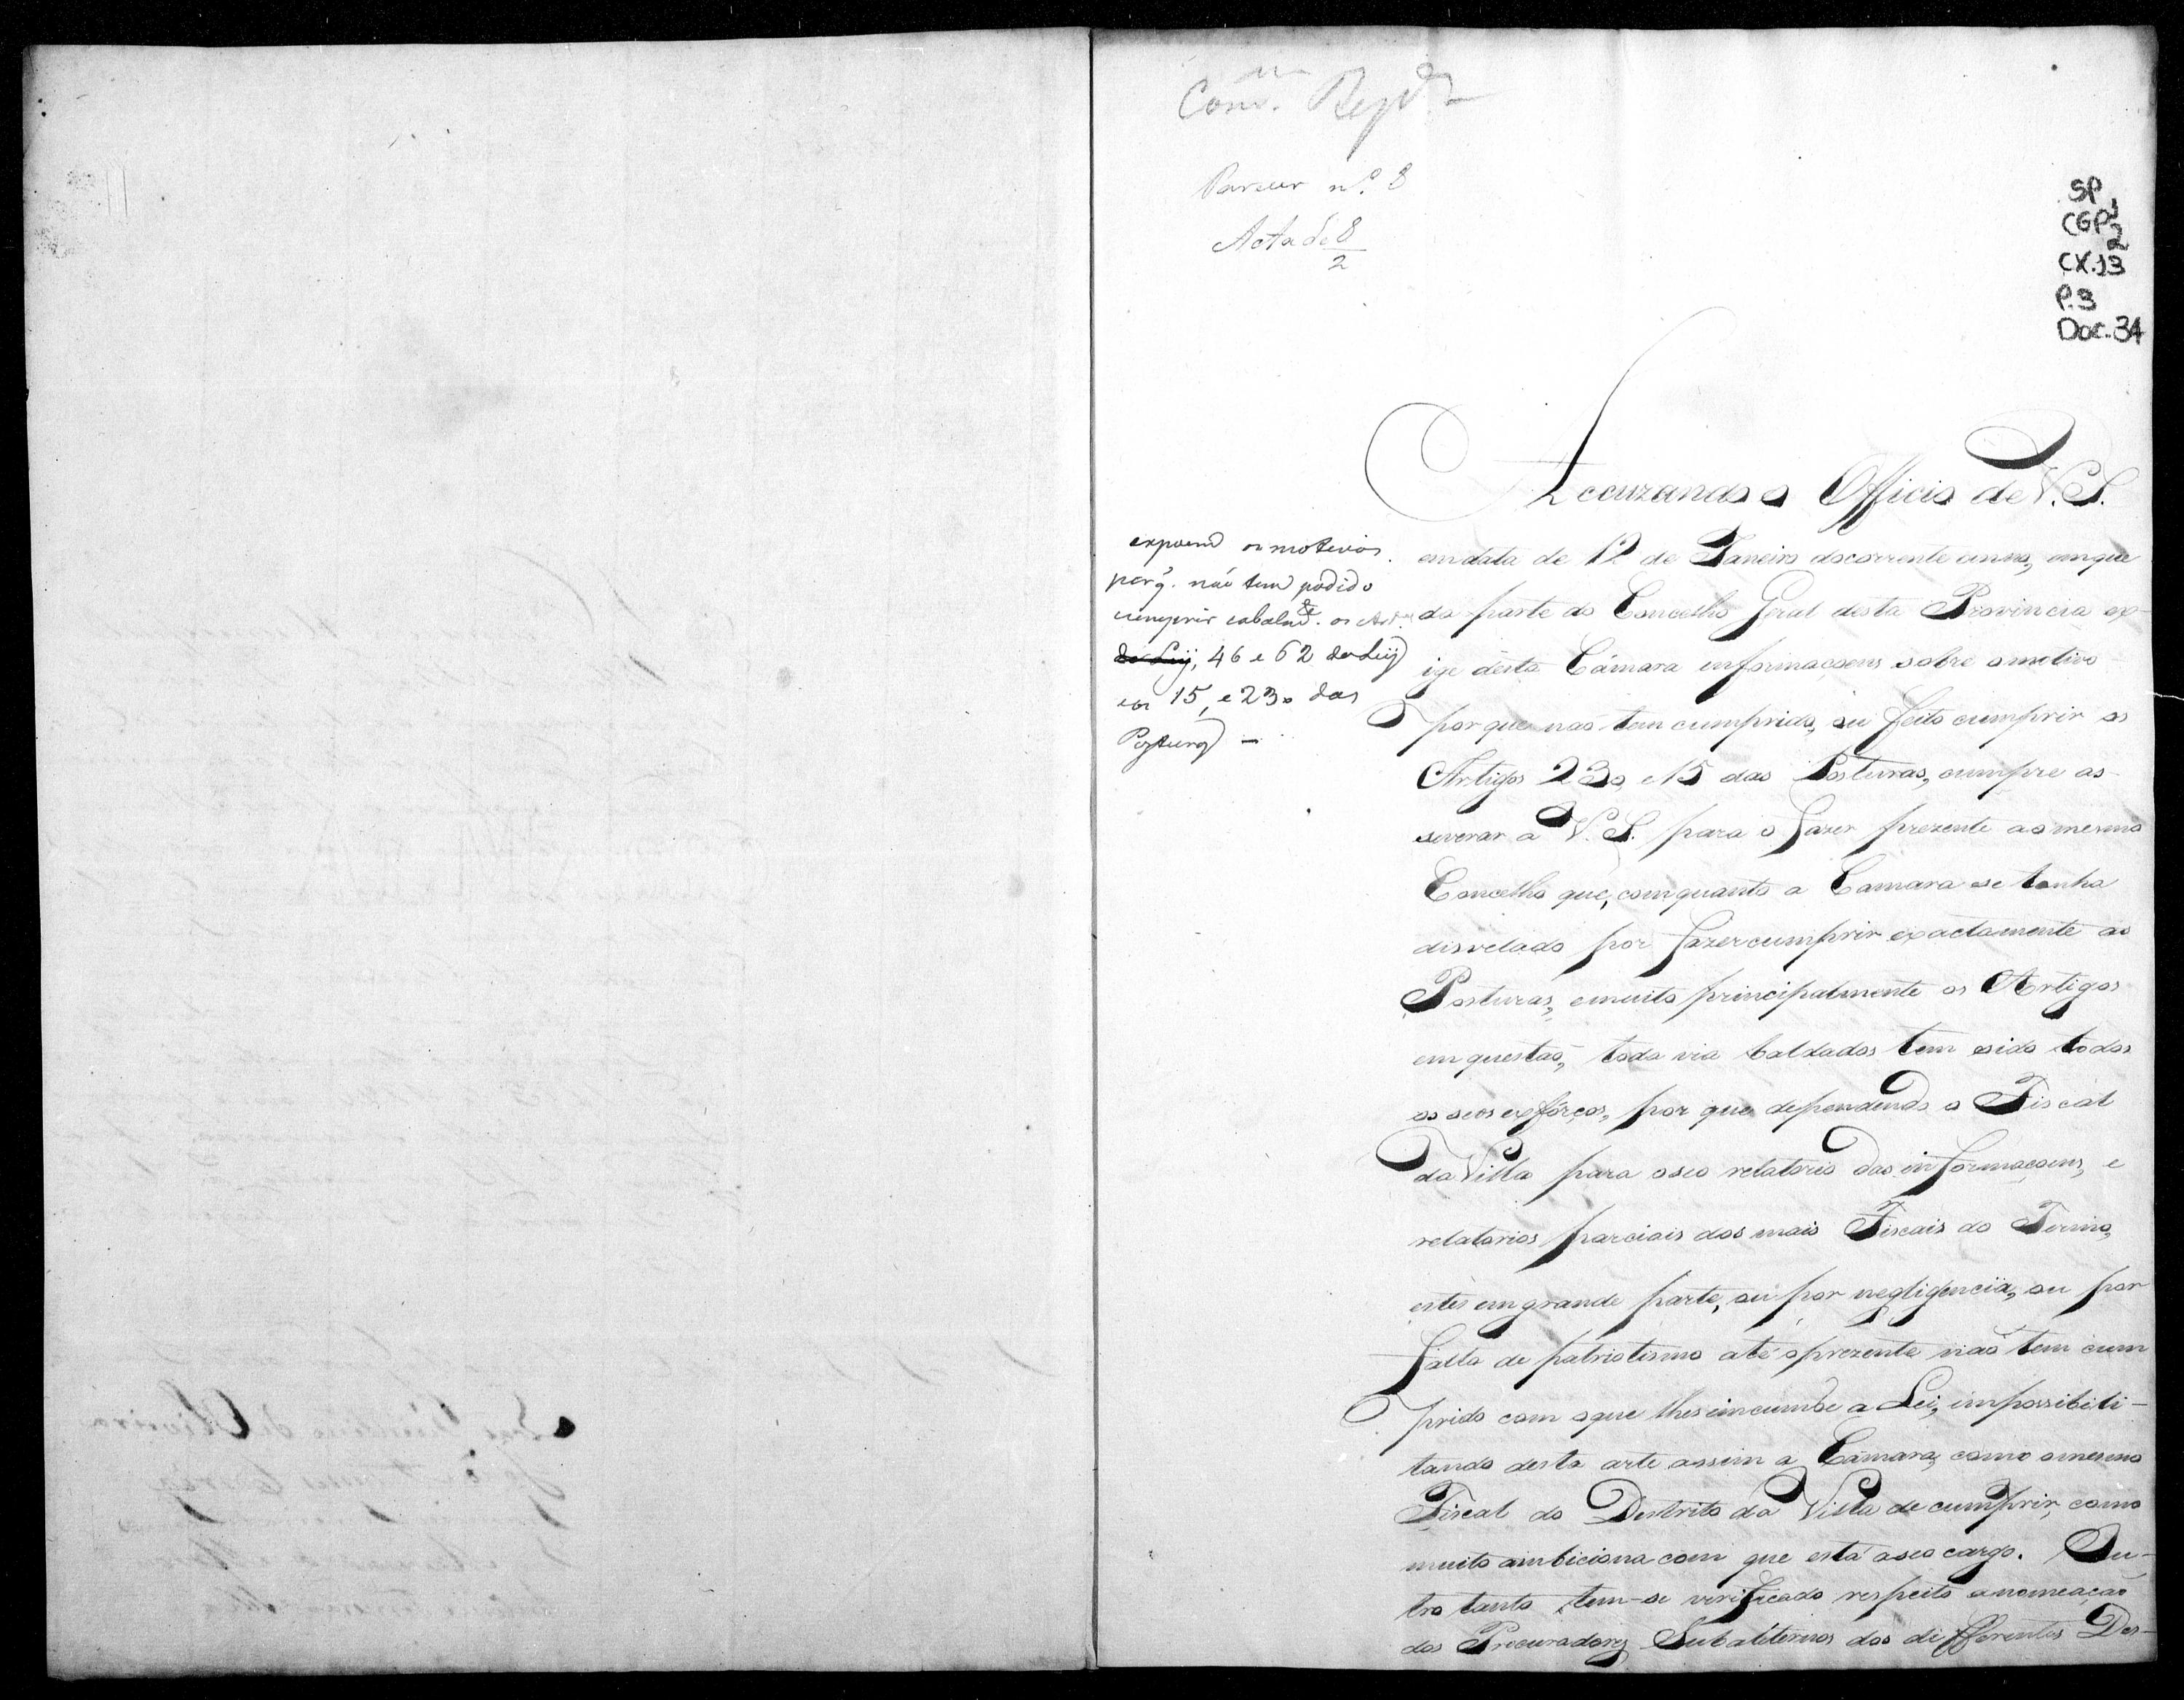 Parecer nº. 8
Acta de 8
2
SP
CGP 1
2
CX.13
P.3
Doc.34
expoem os motivos
porq. não tem podido
cumprir cabalmte. os Art.os
da Leij, 46 e 62 da Leij
e os 15, e 230 das
Posturas -
Accuzando o Officio de V. S.
em data de 12 de Janeiro do corrente anno, em que
da parte do Concelho Geral desta Provincia ex-
ige desta Câmara informaçoens sobre o motivo
por que nao tem cumprido, ou feito cumprir os
Artigos 230, e 15 das Posturas, cumpre as-
severar a V. S. para o fazer prezente ao mesmo
Concelho que, com quanto a Camara se tenha
disvelado por fazer cumprir exactamente as
Posturas, e muito principalmente os Artigos
em questaõ, toda via baldados tem sido todos
os seos exforços, por que dependendo o Fiscal
da Villa para o seo relatorio das informaçoens, e
relatorios parciais dos mais Fiscais do Termo,
estes em grande parte, ou por negligencia, ou por
falta de patriotismo até o prezente naõ tem cum
prido com o que lhes incumbe a Lei, impossibili-
tando desta arte assim a Câmara, como o mesmo
Fiscal do Destrito da Villa de cumprir, como
muito ambiciona com que está a seo cargo. Ou-
tro tanto tem-se verificado respeito a nomeação
dos Procuradores Subalternos dos differentes Des-